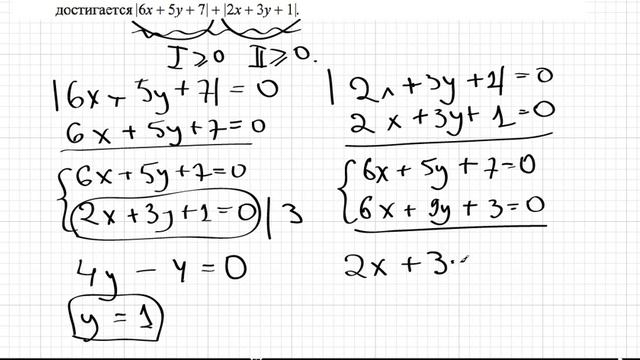 достигается |6x + 5y + 7| + |2x + 3y + 1|.
I ⩾ 0 II ⩾ 0.
|6x + 5y + 7| = 0
6x + 5y + 7 = 0
6x + 5y + 7 = 0
2x + 3y + 1 = 0 | 3
4y - 4 = 0
y = 1
|2x + 3y + 1| = 0
2x + 3y + 1 = 0
6x + 5y + 7 = 0
6x + 9y + 3 = 0
2x + 3·